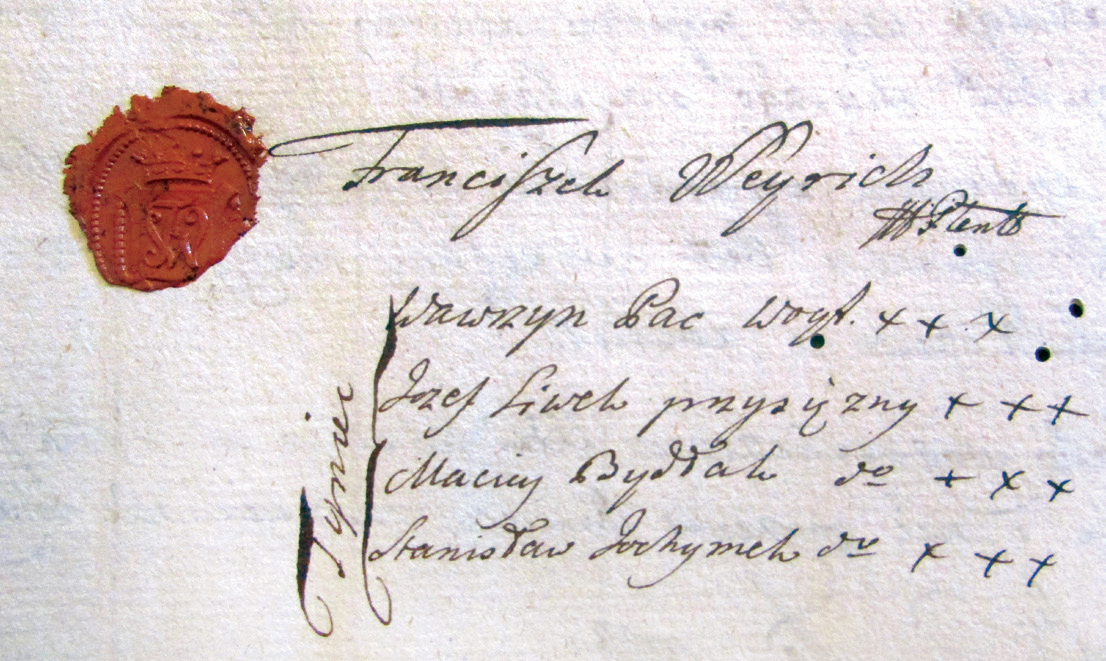 Franciszek Weyrich
Tyniec
Wawrzyn Pac Woyt. + + +
Jozef Liwek przysięzny + + +
Maciey Bydłak do + + +
Stanisław Jochymek do + + +